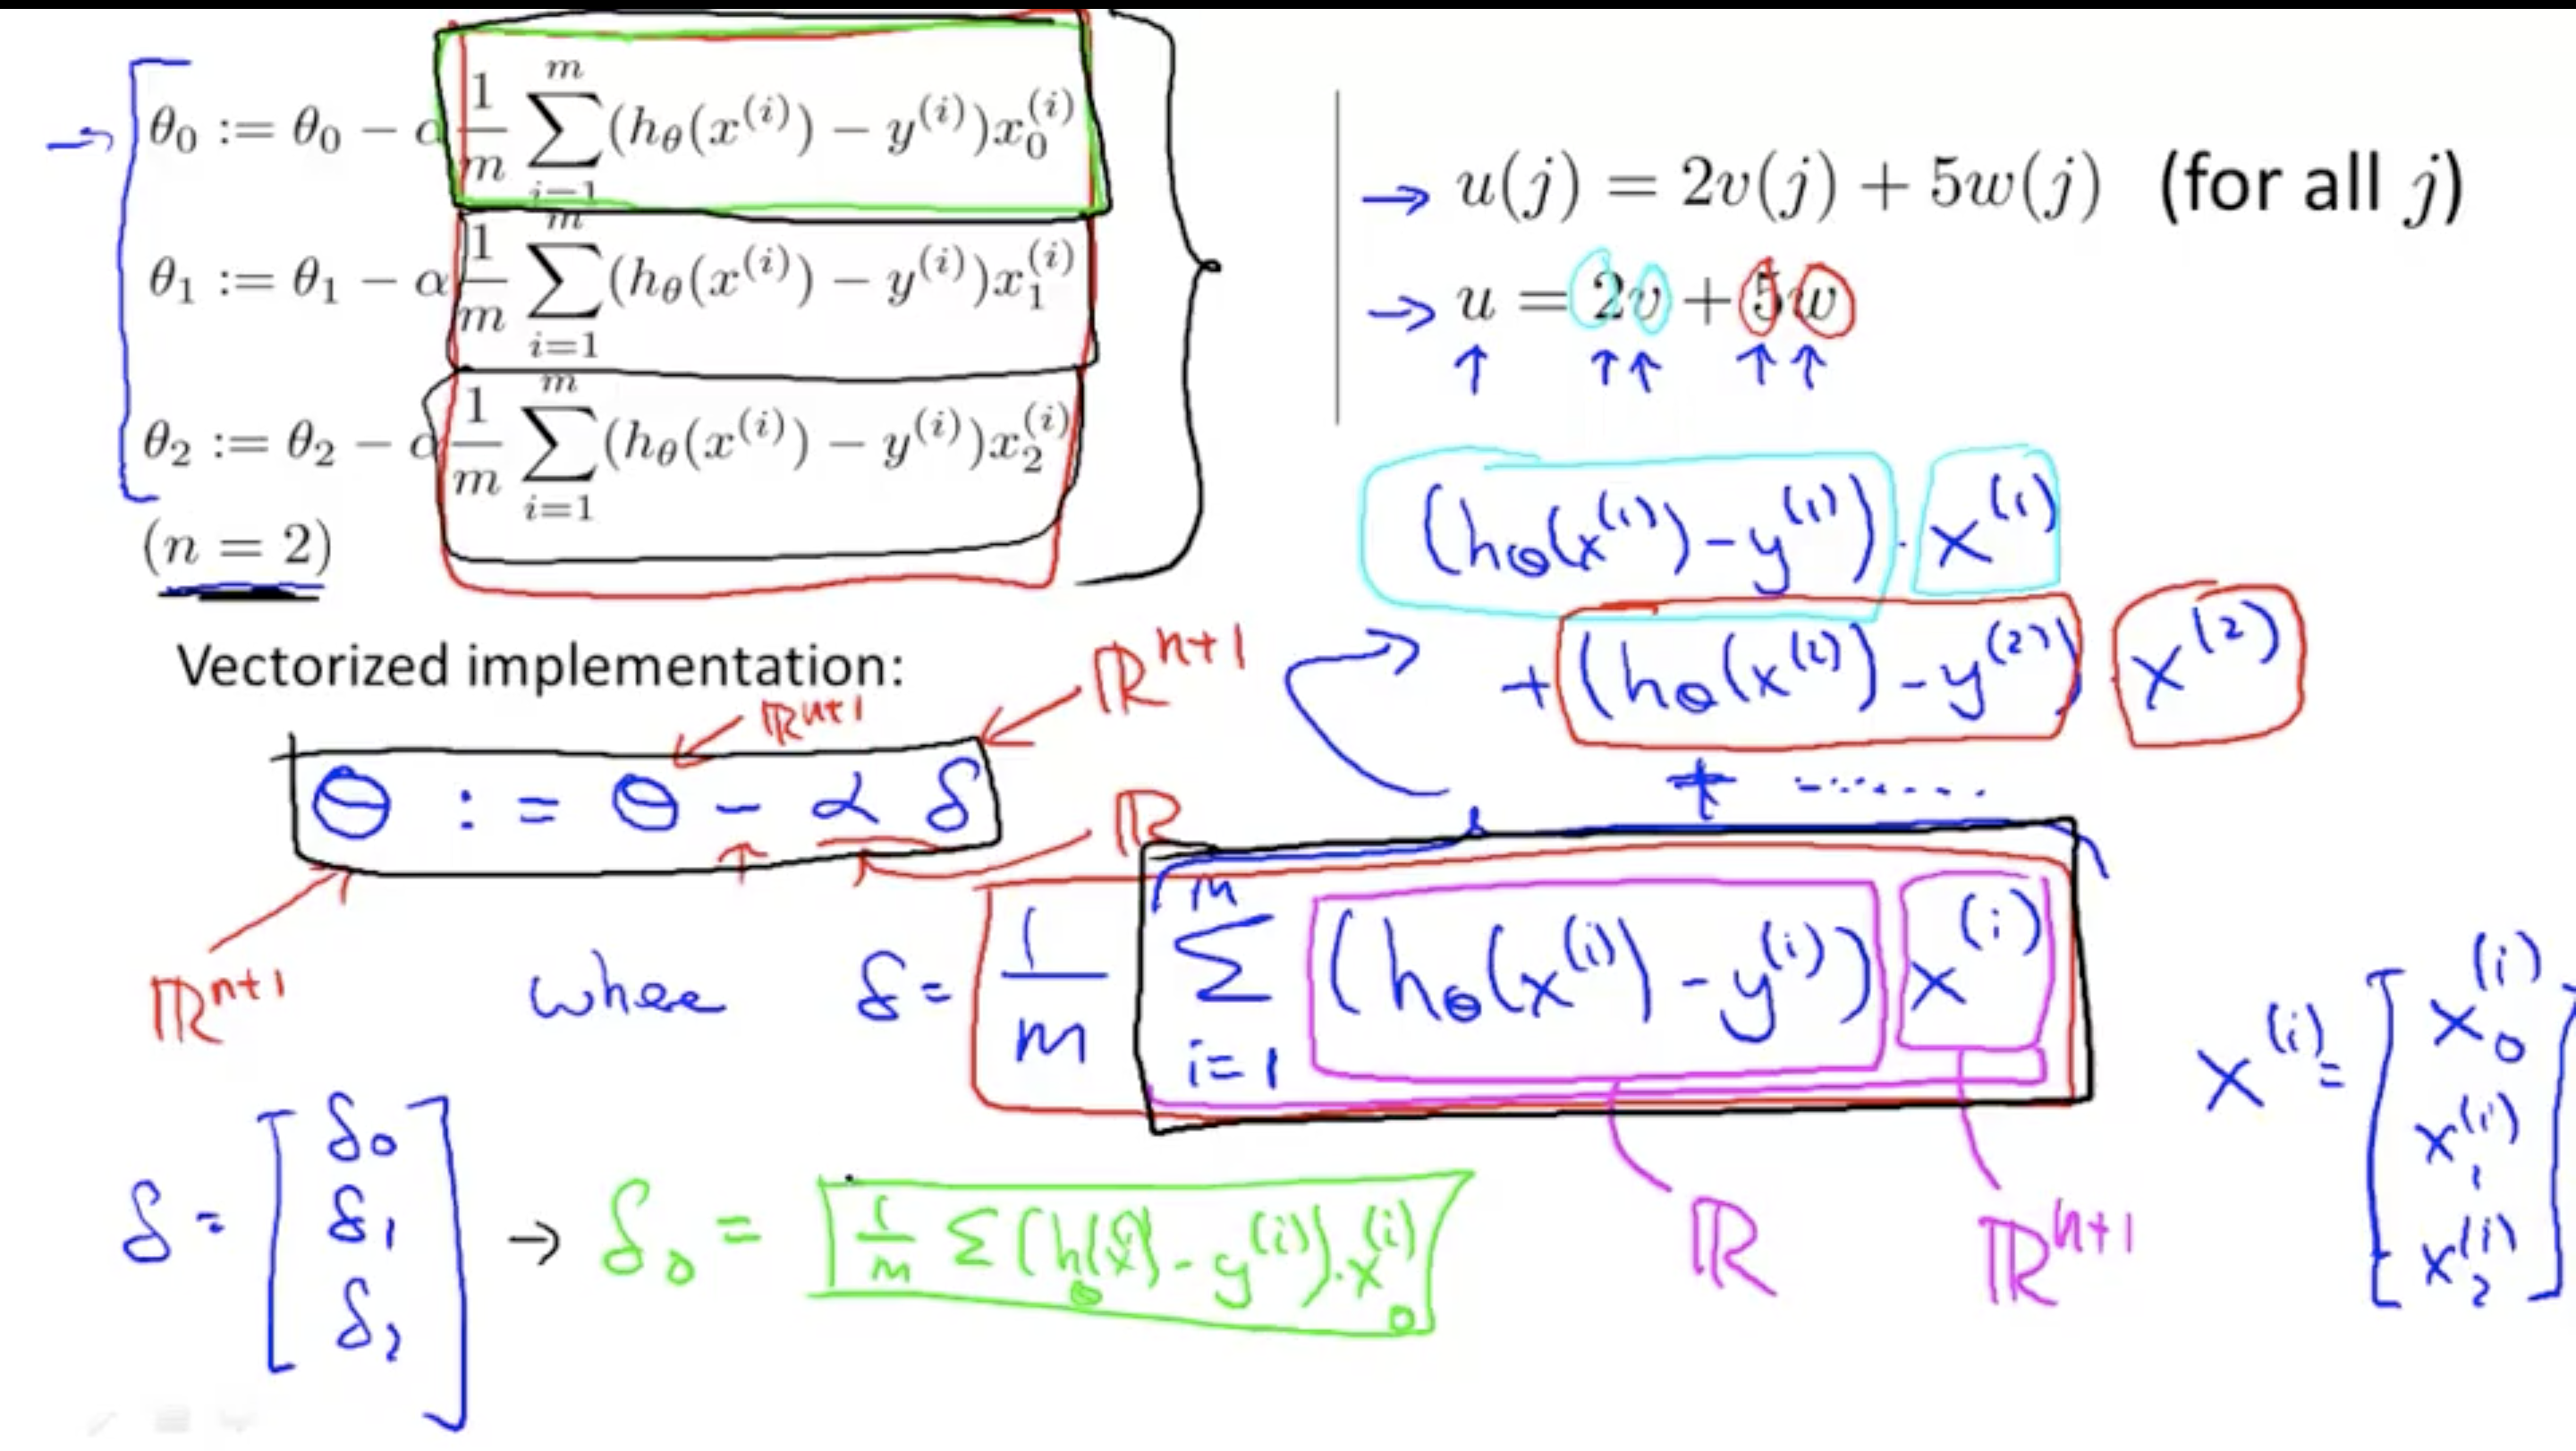 θ₀ := θ₀ − α 1/m ∑_{i=1}^{m} (h_θ(x^{(i)}) − y^{(i)})x₀^{(i)}
θ₁ := θ₁ − α 1/m ∑_{i=1}^{m} (h_θ(x^{(i)}) − y^{(i)})x₁^{(i)}
θ₂ := θ₂ − α 1/m ∑_{i=1}^{m} (h_θ(x^{(i)}) − y^{(i)})x₂^{(i)}
(n = 2)
→ u(j) = 2v(j) + 5w(j) (for all j)
→ u = 2v + 5w
↑ ↑ ↑ ↑ ↑
(h_θ(x^{(1)}) − y^{(1)}) · x^{(1)}
+ (h_θ(x^{(2)}) − y^{(2)}) x^{(2)}
+ .......
Vectorized implementation:
ℝ^{n+1}
ℝ^{n+1}
θ := θ − α δ
ℝ
ℝ^{n+1}
where δ = 1/m ∑_{i=1}^{m} (h_θ(x^{(i)}) − y^{(i)}) x^{(i)}
ℝ
ℝ^{n+1}
x^{(i)} = [x₀^{(i)}
x₁^{(i)}
x₂^{(i)}]
δ = [δ₀
δ₁
δ₂]
→ δ₀ = 1/m ∑ (h_θ(x^{(i)}) − y^{(i)}) · x₀^{(i)}